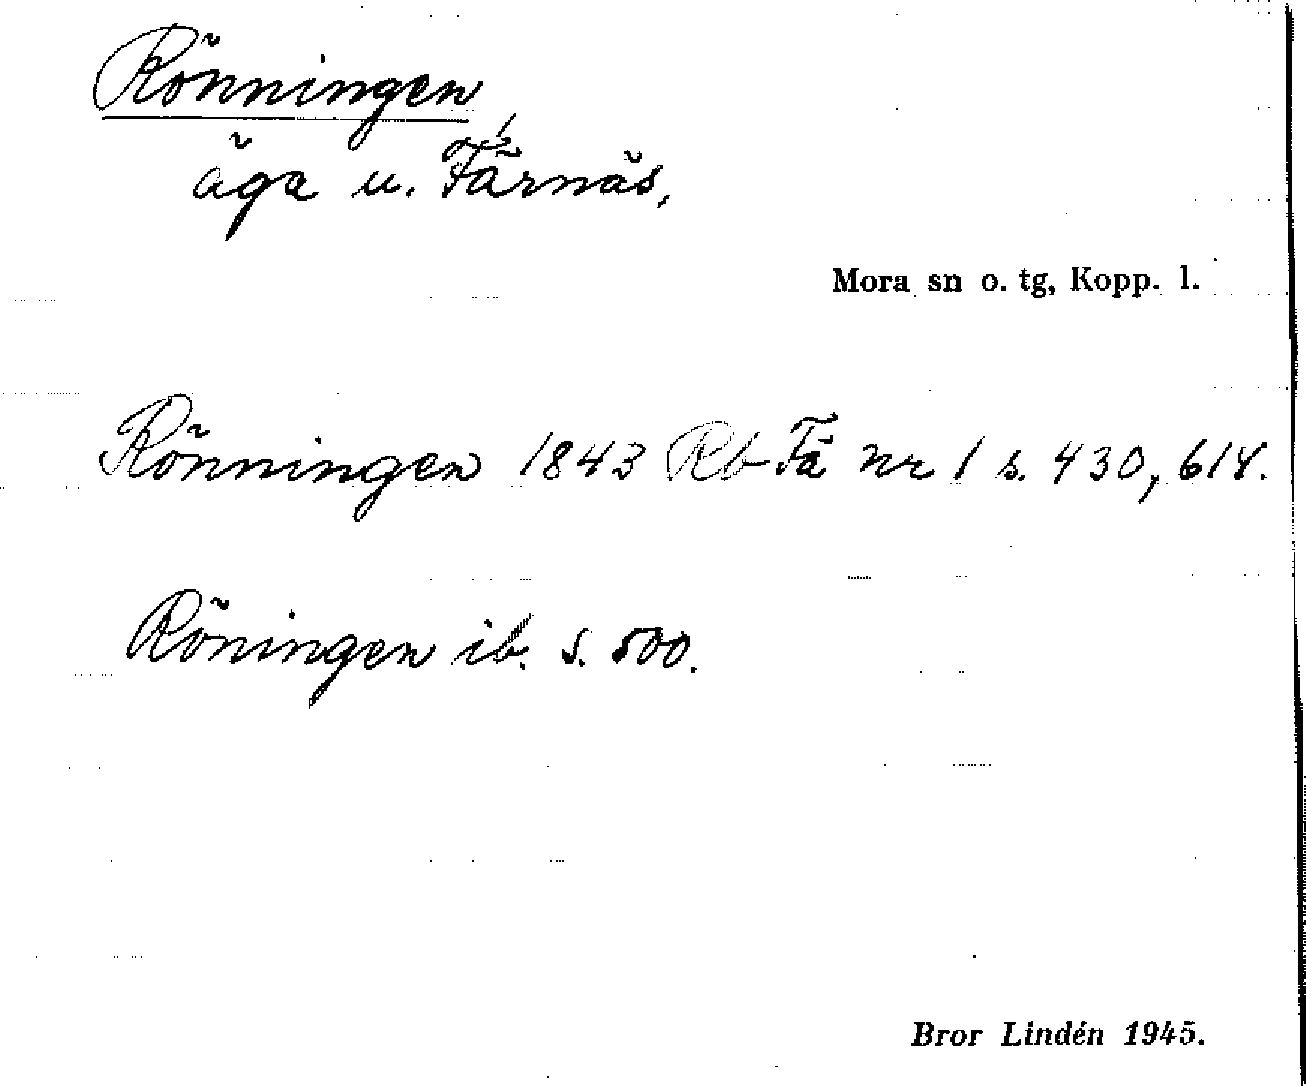 Rönningen
äga u. Färnäs,
Mora sn o. tg, Kopp. l.
Rönningen 1843 Rb Fä nr 1 s. 430, 618.
Röningen ib. s. 500.
Bror Lindén 1945.